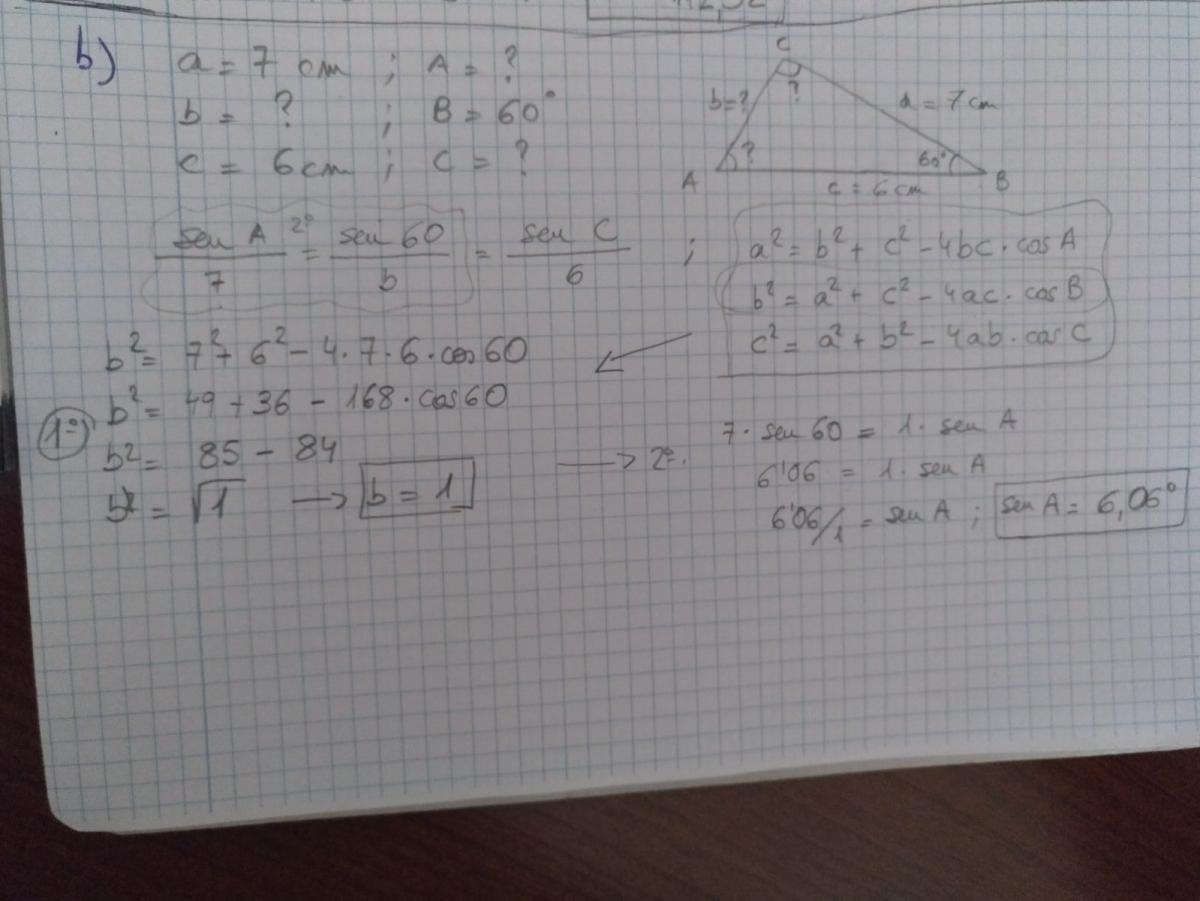 12,52
b) a = 7 cm ; A = ?
b = ? ; B = 60°
c = 6cm ; C = ?
C
b=?
?
a = 7 cm
?
60°
A
c = 6 cm
B
sen A / 7 2º = sen 60 / b = sen C / 6 ;
a² = b² + c² - 4bc · cos A
b² = a² + c² - 4ac · cos B
c² = a² + b² - 4ab · cos C
1º)
b² = 7² + 6² - 4 · 7 · 6 · cos 60
b² = 49 + 36 - 168 · cos 60
b² = 85 - 84
b² = √1 → b = 1
→ 2º.
7 · sen 60 = 1 · sen A
6'06 = 1 · sen A
6'06/1 = sen A ; sen A = 6,06°